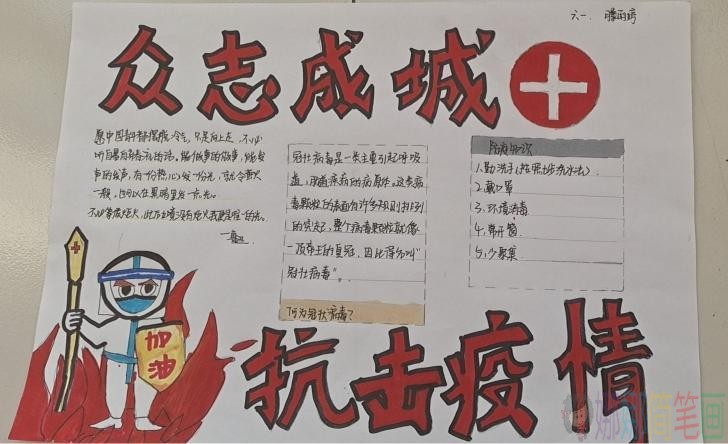 六一.
众志成城
愿中国青年都摆脱冷气，只是向上走，不必
听自暴自弃者流的话。能做事的做事，能发
声的发声，有一份热，发一份光，就令萤火
一般，也可以在黑暗里发一点光。
不必等候炬火，此后如竟没有炬火我便是唯一的光。
—鲁迅
冠状病毒是一类主要引起呼吸
道、肠道疾病的病原体。这类病
毒颗粒的表面有许多规则排列
的突起，整个病毒颗粒就像
一顶帝王的皇冠，因此得名叫“
冠状病毒”。
何为冠状病毒？
防疫知识
1.勤洗手
2.戴口罩
3.环境消毒
4.常开窗
5.少聚集
加
油
抗击疫情
笔画